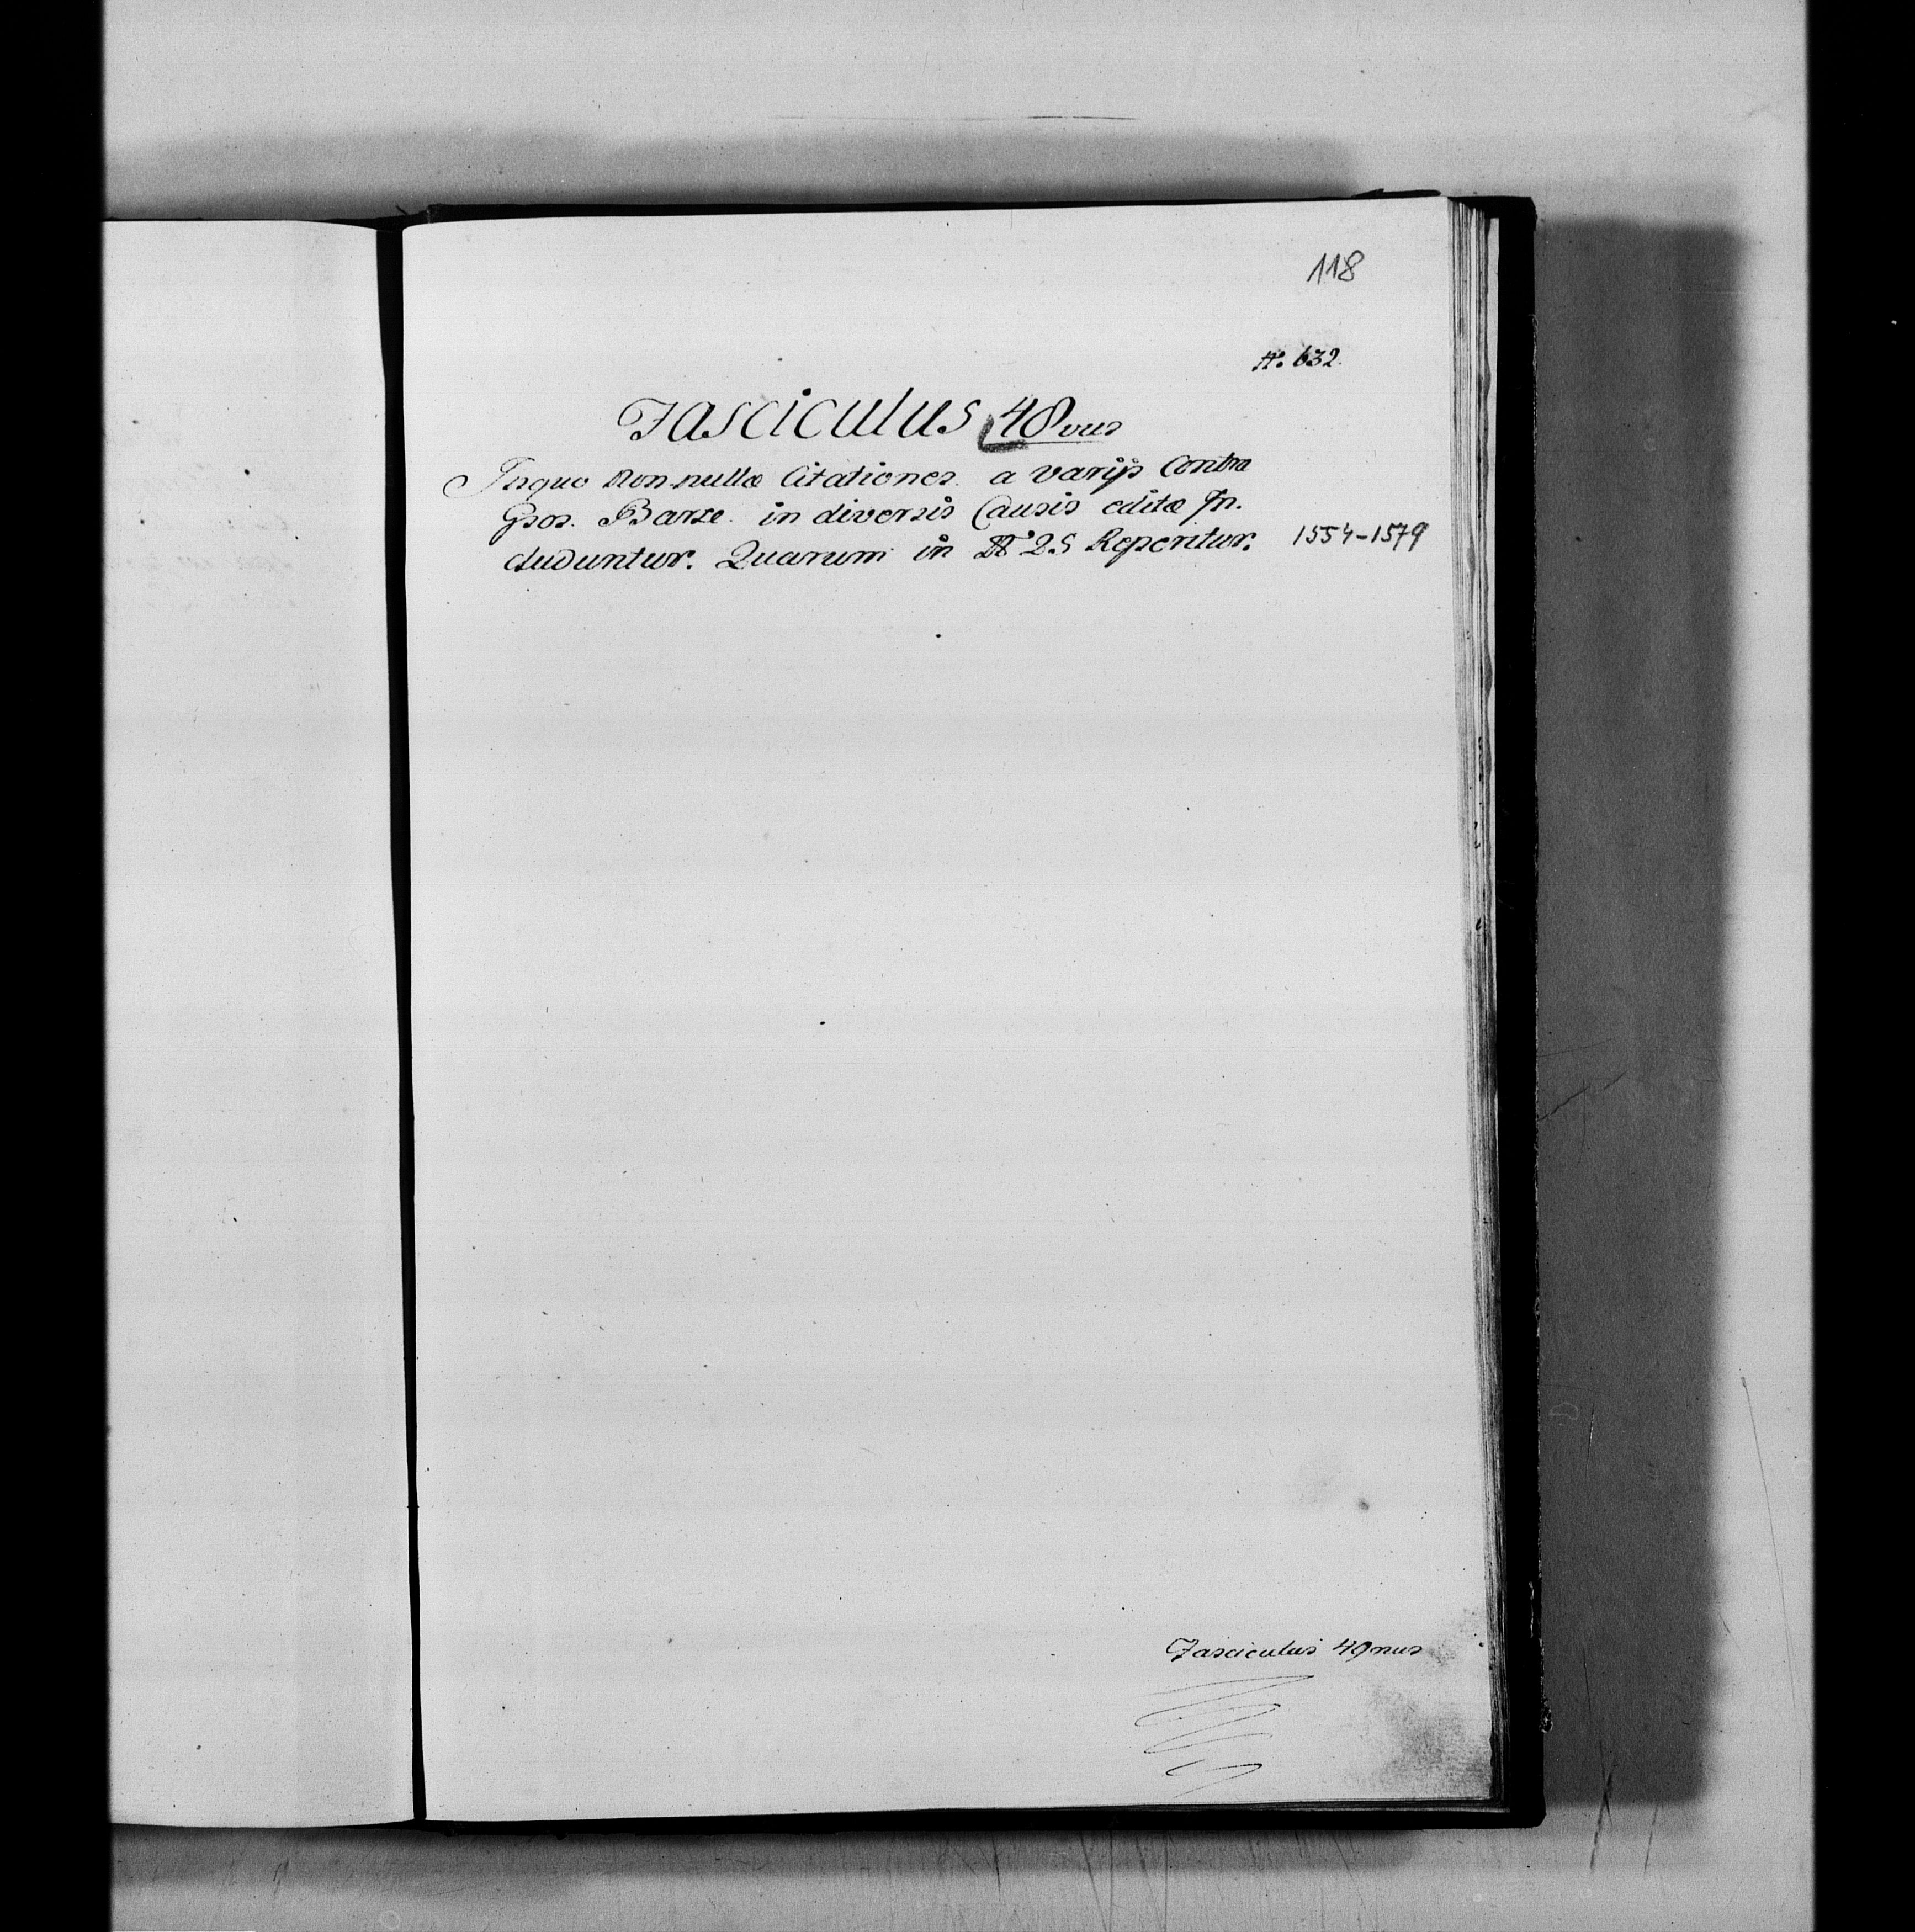 118
N. 632.
Fasciculus 48vus
Inquo Nonnullæ Citationes a varijs Contra
Gsos. Barze in diversis Causis editæ In.
cluduntur. Quarum in N 25 Reperitur. 1554-1579
Fasciculus 49nus